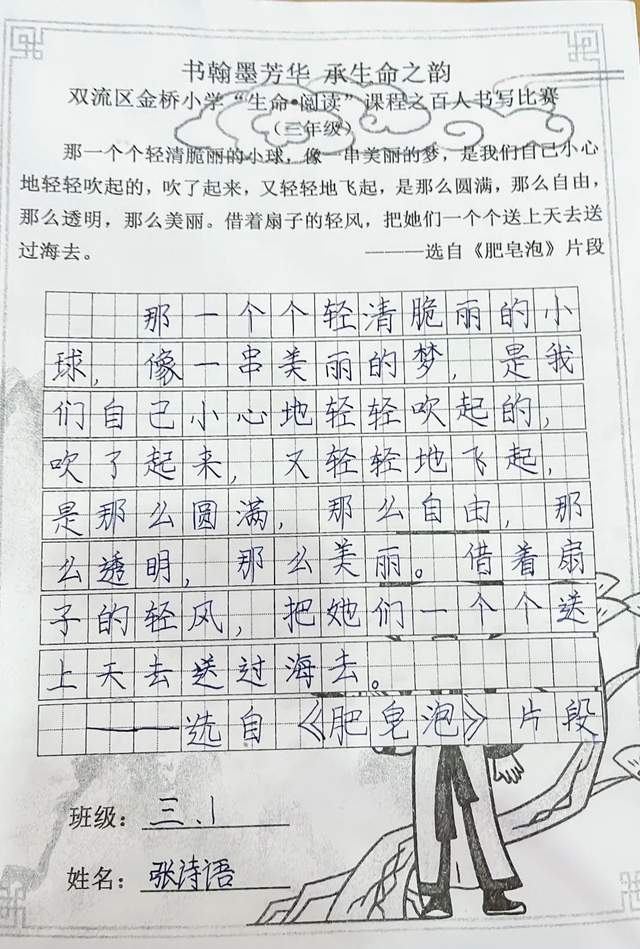 书翰墨芳华 承生命之韵
双流区金桥小学“生命•阅读”课程之百人书写比赛
（三年级）
那一个个轻清脆丽的小球，像一串美丽的梦，是我们自己小心
地轻轻吹起的，吹了起来，又轻轻地飞起，是那么圆满，那么自由，
那么透明，那么美丽。借着扇子的轻风，把她们一个个送上天去送
过海去。 ————选自《肥皂泡》片段
那一个个轻清脆丽的小
球，像一串美丽的梦，是我
们自己小心地轻轻吹起的，
吹了起来，又轻轻地飞起，
是那么圆满，那么自由，那
么透明，那么美丽。借着扇
子的轻风，把她们一个个送
上天去送过海去。
——选自《肥皂泡》片段
班级：三.1
姓名：张诗语